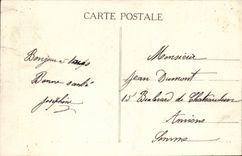 CARTE POSTALE
Bonjour à
Bonne santé
Joséphine
Monsieur
Jean Dumont
15 Boulevard de Châteaudun
Amiens
Somme